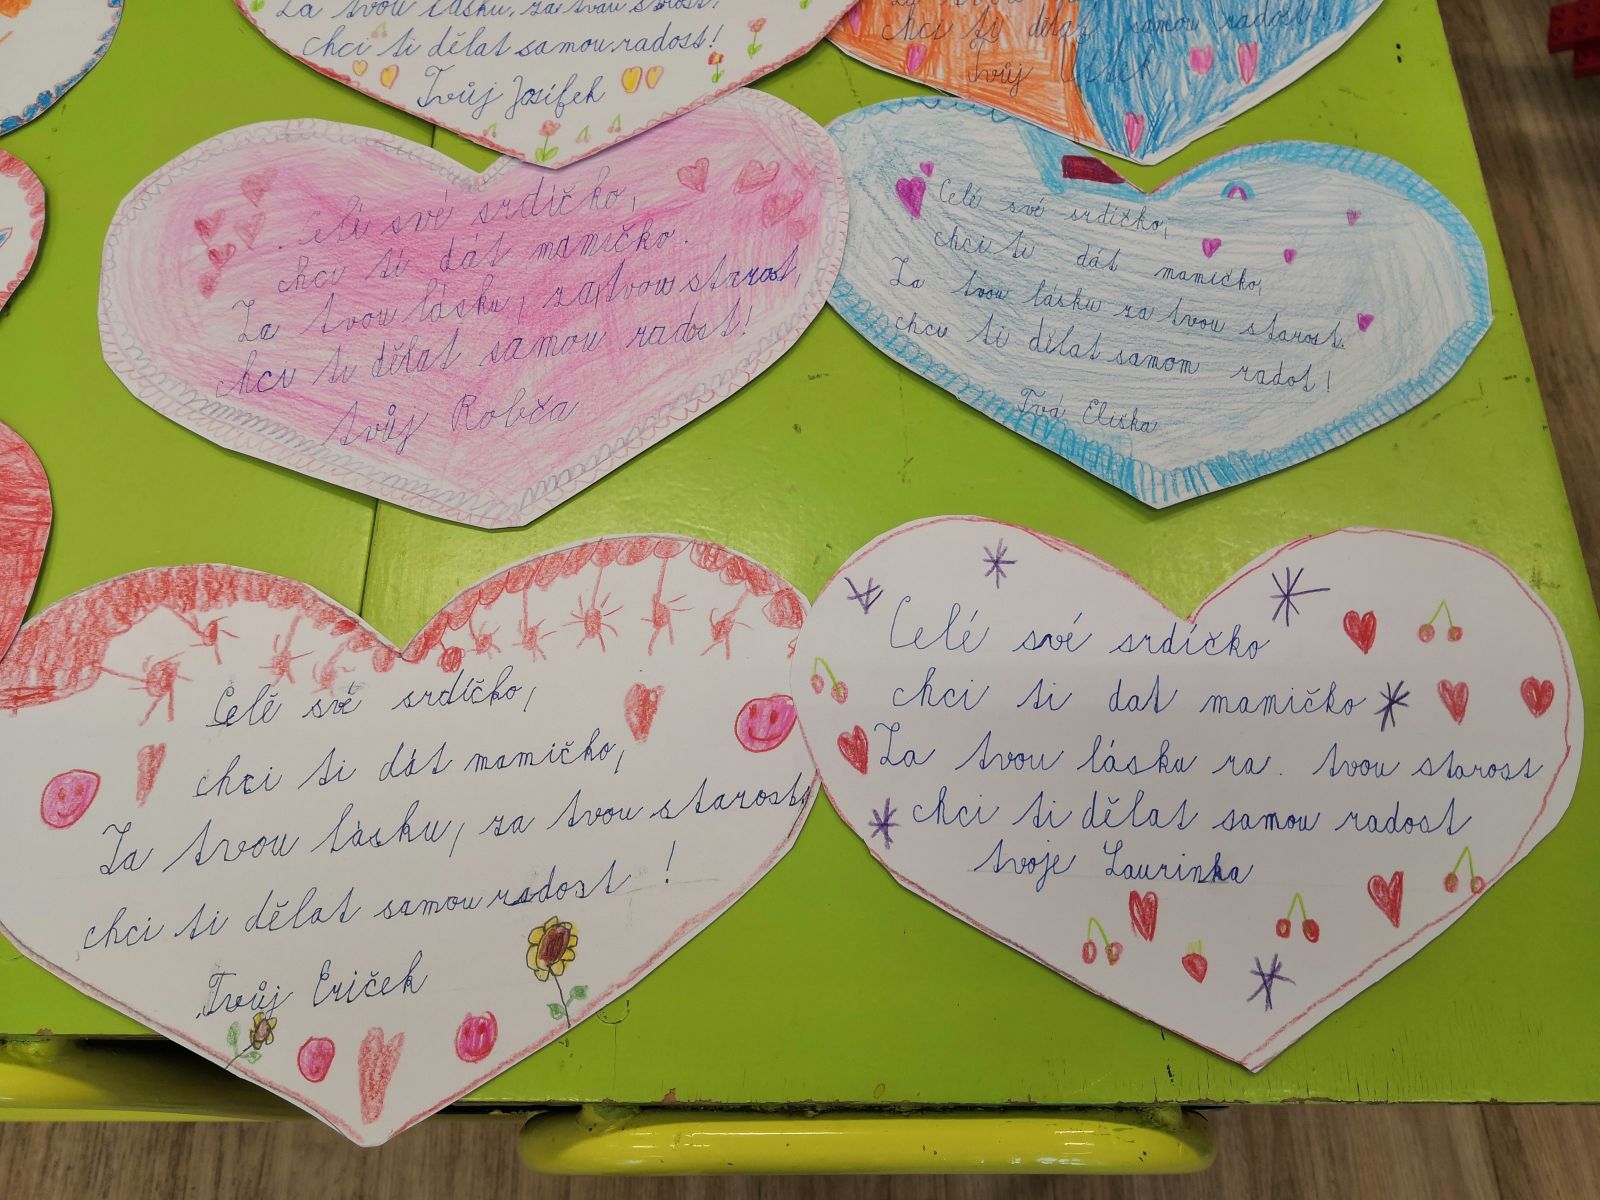 Za tvou lásku, za tvou starost,
chci ti dělat samou radost!
Tvůj Josífek
chci ti dělat samou radost!
Tvůj
Celé své srdíčko,
chci ti dát mamičko.
Za tvou lásku, za tvou starost,
chci ti dělat samou radost!
tvůj Robča
Celé své srdíčko,
chci ti dát mamičko,
Za tvou lásku za tvou starost.
chci ti dělat samom radot!
Tvá Eliška
Celé své srdíčko,
chci ti dát mamičko,
Za tvou lásku, za tvou starost,
chci ti dělat samou radost!
Tvůj Eriček
Celé své srdíčko
chci ti dat mamičko
Za tvou lásku za. tvou starost
chci ti dělat samou radost
tvoje Laurinka